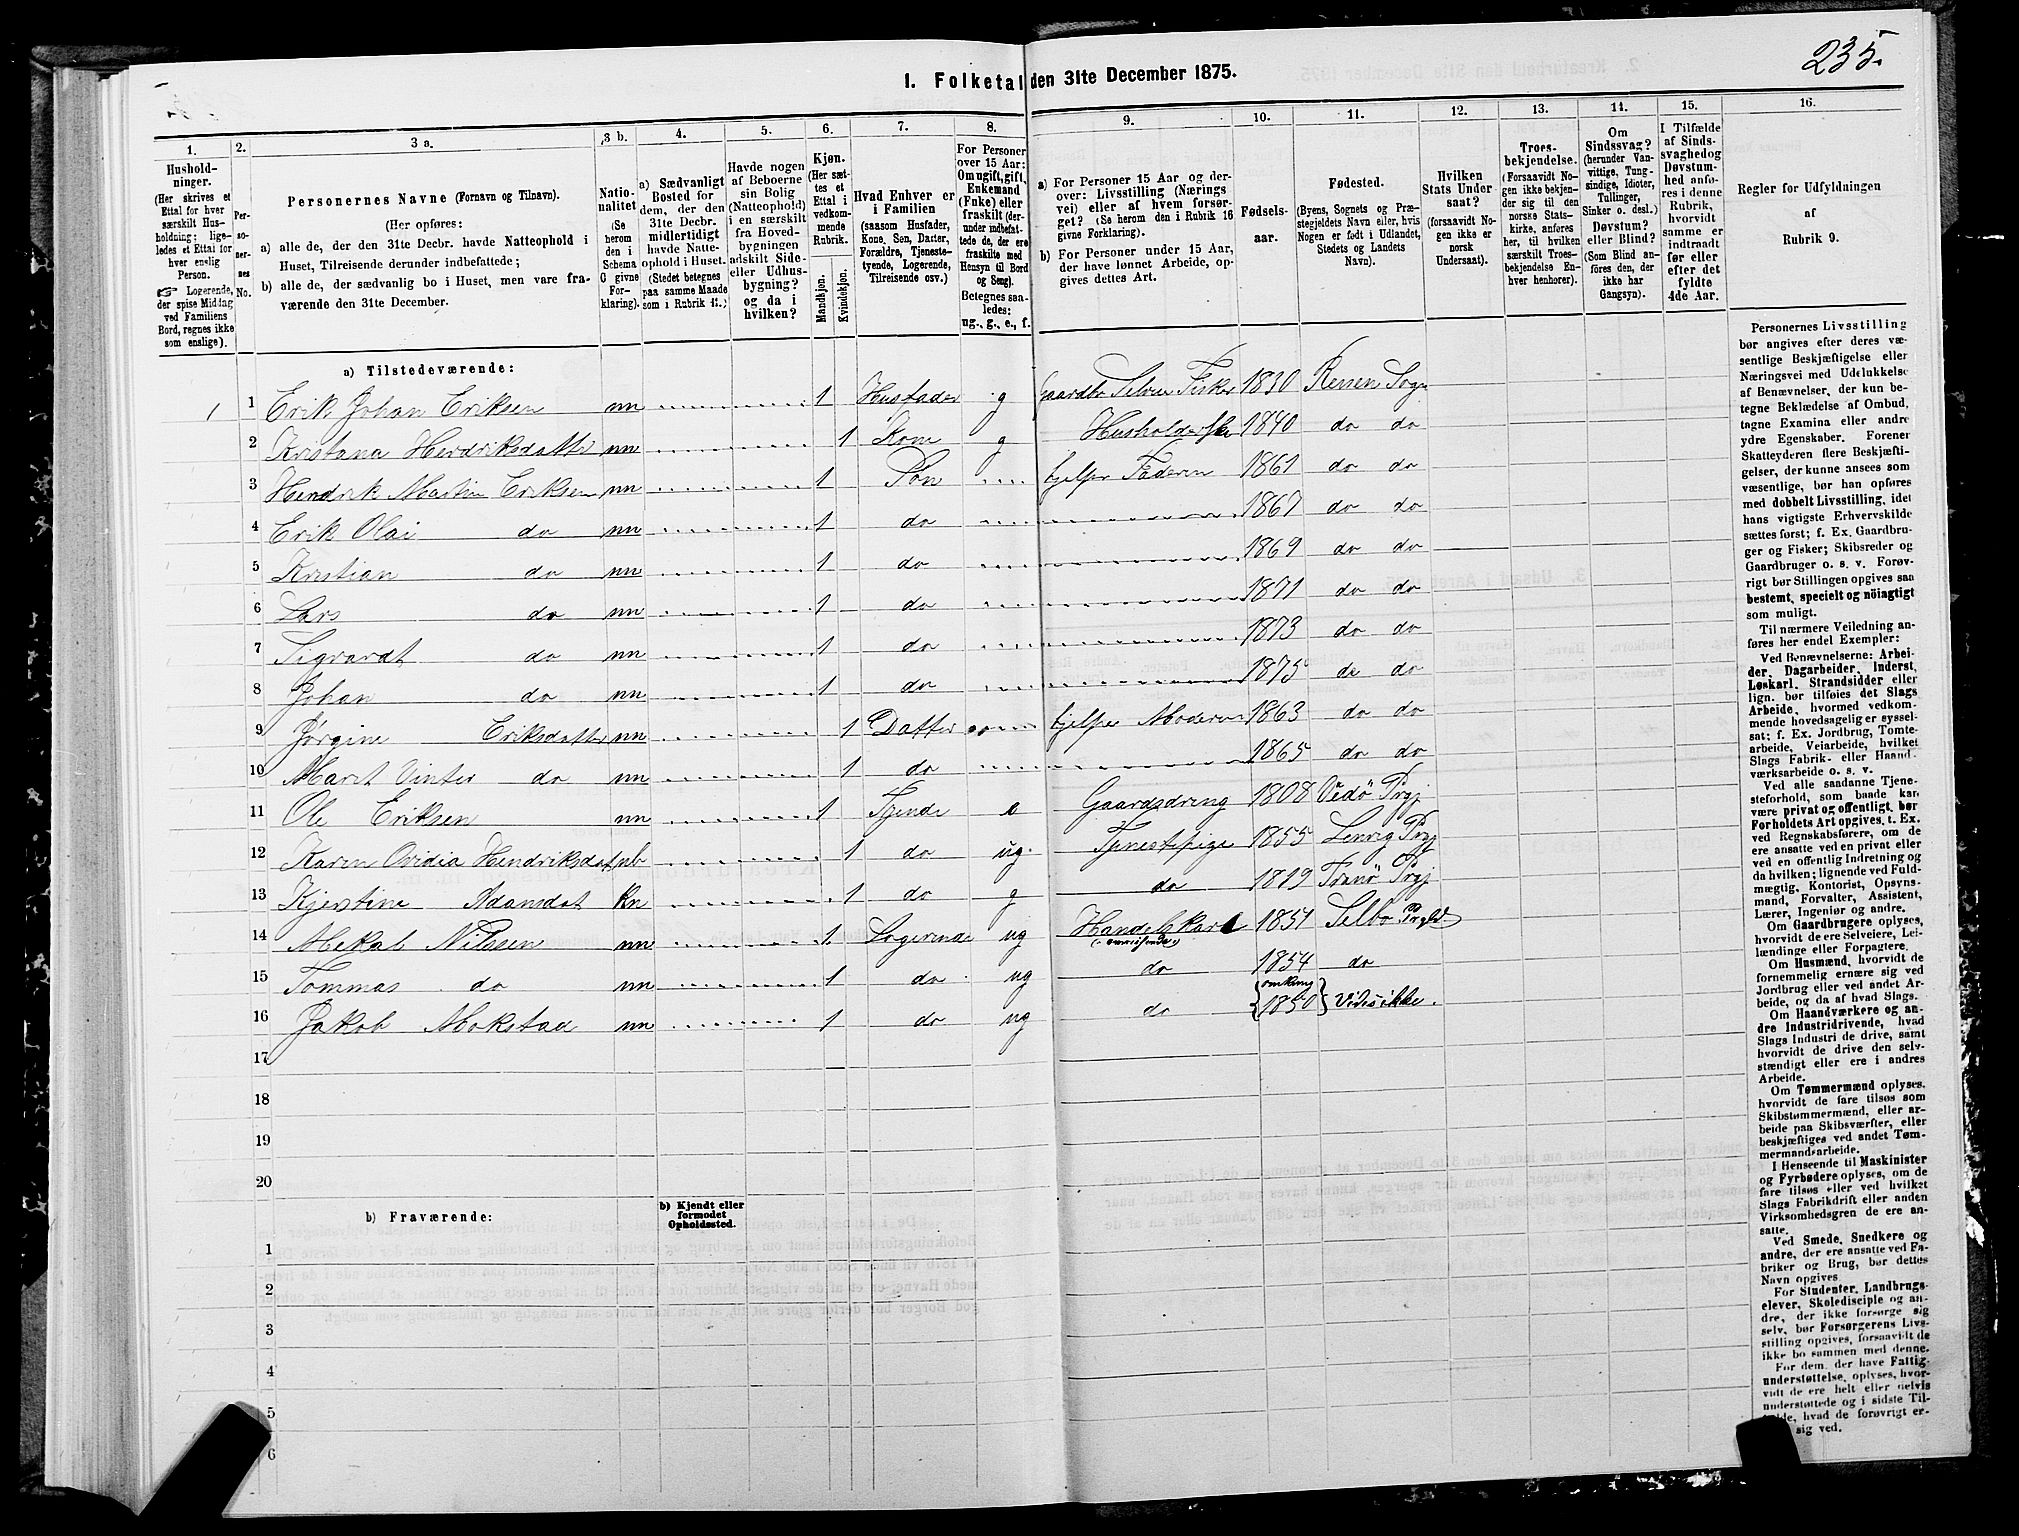 235.
1. Folketal den 31te December 1875.
1. 2. 3 a. 3 b. 4. 5. 6. 7. 8. 9. 10. 11. 12. 13. 14. 15. 16.
Hushold-
ninger.
(Her skrives et
Ettal for hver
særskilt Hus-
holdning; lige-
ledes et Ettal for
hver enslig
Person.
Logerende,
der spise Middag
ved Familiens
Bord, regnes ikke
som enslige).
Per-
so-
ner-
nes
No.
Personernes Navne (Fornavn og Tilnavn).
(Her opføres:
a) alle de, der den 31te Decbr. havde Natteophold i
Huset, Tilreisende derunder indbefattede;
b) alle de, der sædvanlig bo i Huset, men vare fra-
værende den 31te December.
Natio-
nalitet
(Se
herom
den i
Schema
O givne
For-
klaring).
a) Sædvanligt
Bosted for
dem, der den
31te Decbr.
midlertidigt
havde Natte-
ophold i Huset.
(Stedet betegnes
paa samme Maade
som i Rubrik 11.)
Havde nogen
af Beboerne
sin Bolig
(Natteophold)
i en særskilt
fra Hoved-
bygningen
adskilt Side-
eller Udhus-
bygning?
og da i
hvilken?
Kjøn.
(Her sæt-
tes et
Ettal i
vedkom-
mende
Rubrik.
Mandkjøn.
Kvindekjøn.
Hvad Enhver er
i Familien
(saasom Husfader,
Kone, Søn, Datter,
Forældre, Tjeneste-
tyende, Logerende,
Tilreisende osv.)
For Personer
over 15 Aar:
Om ugift, gift,
Enkemand
(Enke) eller
fraskilt (der-
under indbefat-
tede de, der ere
fraskilte med
Hensyn til Bord
og Seng).
Betegnes saa-
ledes:
ug., g., e., f.
a) For Personer 15 Aar og der-
over: Livsstilling (Nærings
vei) eller af hvem forsør-
get? (Se herom den i Rubrik 16
givne Forklaring).
b) For Personer under 15 Aar,
der have lønnet Arbeide, op-
gives dettes Art.
Fødsels-
aar.
Fødested.
(Byens, Sognets og Præ-
stegjeldets Navn eller, hvis
Nogen er født i Udlandet,
Stedets og Landets
Navn).
Hvilken
Stats Under
saat?
(forsaavidt No-
gen ikke er
norsk
Undersaat).
Troes-
bekjendelse.
(Forsaavidt No-
gen ikke bekjen-
der sig til den
norske Stats-
kirke, anføres
her, til hvilken
særskilt Troes-
bekjendelse En-
hver henhører).
Om
Sindssvag?
(herunder Van-
vittige, Tung-
sindige, Idioter,
Tullinger,
Sinker o. desl.)
Døvstum?
eller Blind?
(Som Blind an-
føres den, der
ikke har
Gangsyn).
I Tilfælde
af Sinds-
svaghed og
Døvstum-
hed anfø-
res i denne
Rubrik,
hvorvidt
samme er
indtraadt
før eller
efter det
fyldte
4de Aar.
Regler for Udfyldningen
af
Rubrik 9.
a) Tilstedeværende:
1 1 Erik Johan Eriksen nn 1 Husfader g Gaardbr Selveier Fisker 1830 Ressen Sogn
2 Kristana Hendriksdatter nn 1 Kone g Husholderske 1840 do do
3 Hendrik Martin Eriksen nn 1 Søn hjelper Faderen 1861 do do
4 Erik Olai do nn 1 do 1867 do do
5 Kristian do nn 1 do 1869 do do
6 Lars do nn 1 do 1871 do do
7 Sigvardt do nn 1 do 1873 do do
8 Johan do nn 1 do 1875 do do
9 Jørgine Eriksdatter nn 1 Datter hjelper Moderen 1863 do do
10 Maret Vinter do nn 1 do 1865 do do
11 Ole Eriksen nn 1 Tjende e Gaardsdreng 1808 Vedø Prgj
12 Karen Ovidia Hendriksdat nb 1 do ug. Tjenestepige 1855 Lenvig Prgj
13 Kjerstine Adamsdat kn 1 do g do 1819 Tranø Prgj
14 Mekal Nilssen nn 1 Logerende ug Handelskarl 1851 Selbo Prgld
(omreisende)
15 Tommas do nn 1 do ug do 1854 do
16 Jakob Mokstad nn 1 do ug do {omkring 1850} Vides ikke.
17
18
19
20
b) Fraværende:
b) Kjendt eller
formodet
Opholdssted.
1
2
3
4
5
6
Personernes Livsstilling
bør angives efter deres væ-
sentlige Beskjæftigelse eller
Næringsvei med Udelukkelse
af Benævnelser, der kun be-
tegne Beklædelse af Ombud,
tagne Examina eller andre
ydre Egenskaber. Forener
Skatteyderen flere Beskjæfti-
gelser, der kunne ansees som
væsentlige, bør han opføres
med dobbelt Livsstilling, idet
hans vigtigste Erhvervskilde
sættes først; f. Ex. Gaardbru-
ger og Fisker; Skibsreder og
Gaardbruger o. s. v. Forøv-
rigt bør Stillingen opgives saa
bestemt, specielt og nöiagtigt
som muligt.
Til nærmere Veiledning an-
føres her endel Exempler:
Ved Benævnelserne: Arbei-
der, Dagarbeider, Inderst,
Løskarl, Strandsidder eller
lign. bør tilføies det Slags
Arbeide, hvormed vedkom-
mende hovedsagelig er syssel-
sat; f. Ex. Jordbrug, Tomte-
arbeide, Veiarbeide, hvilket
Slags Fabrik- eller Haand-
værksarbeide o. s. v.
Ved alle saadanne Tjene-
steforhold, som baade kan
være privat og offentligt, bør
Forholdets Art opgives, t. Ex.
ved Regnskabsførere, om de
ere ansatte ved en privat eller
ved en offentlig Indretning og
da hvilken; lignende ved Fuld-
mægtig, Kontorist, Opsyns-
mand, Forvalter, Assistent,
Lærer, Ingeniør og andre.
Om Gaardbrugere oplyses,
hvorvidt de ere Selveiere, Lei-
lændinge eller Forpagtere.
Om Husmænd, hvorvidt de
fornemmelig ernære sig ved
Jordbrug eller ved andet Ar-
beide, og da af hvad Slags.
Om Haandværkere og an-
dre Industridrivende, hvad
Slags Industri de drive, samt
hvorvidt de drive den selv-
stændigt eller ere i andres
Arbeide.
Om Tømmermænd oplyses,
hvorvidt de fare tilsøs som
Skibstømmermænd, eller ar-
beide paa Skibsværfter, eller
beskjæftiges ved andet Tøm-
mermandsarbeide.
I Henseende til Maskinister
og Fyrbødere oplyses, om de
fare tilsøs eller ved hvilket
Slags Fabrikdrift eller anden
Virksomhedsgren de ere an-
satte.
Ved Smede, Snedkere og
andre, der ere ansatte ved Fa-
briker og Brug, bør dettes
Navn opgives
For Studenter, Landbrugs-
elever, Skoledisciple og an-
dre, der ikke forsørge sig
selv, bør Forsørgerens Livs-
stilling opgives, forsaavidt de
ikke bo sammen med denne.
For dem, der have Fattig-
understøttelse, oplyses, hvor-
vidt de ere helt eller delvis
understøttede og i sidste Til-
fælde, hvad de forøvrigt er-
sig ved.